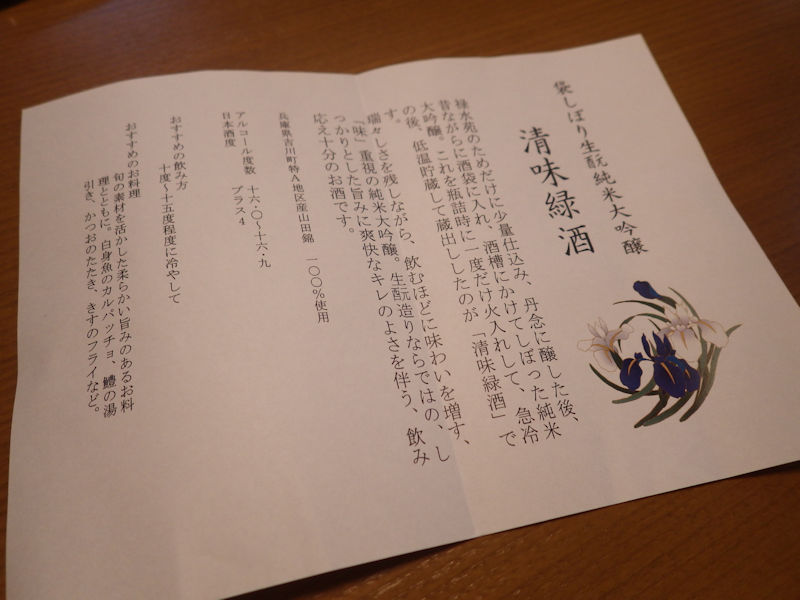 袋しぼり生酛純米大吟醸
清味緑酒
禄水苑のためだけに少量仕込み、丹念に醸した後、
昔ながらに酒袋に入れ、酒槽にかけてしぼった純米
大吟醸。これを瓶詰時に一度だけ火入れして、急冷
の後、低温貯蔵して蔵出ししたのが「清味緑酒」で
す。
瑞々しさを残しながら、飲むほどに味わいを増す、
「味」重視の純米大吟醸。生酛造りならではの、し
っかりとした旨みに爽快なキレのよさを伴う、飲み
応え十分のお酒です。
兵庫県吉川町特A地区産山田錦 一〇〇%使用
アルコール度数 十六・〇~十六・九
日本酒度 プラス4
おすすめの飲み方
十度~十五度程度に冷やして
おすすめのお料理
旬の素材を活かした柔らかい旨みのあるお料
理とともに。白身魚のカルパッチョ、鱧の湯
引き、かつおのたたき、きすのフライなど。